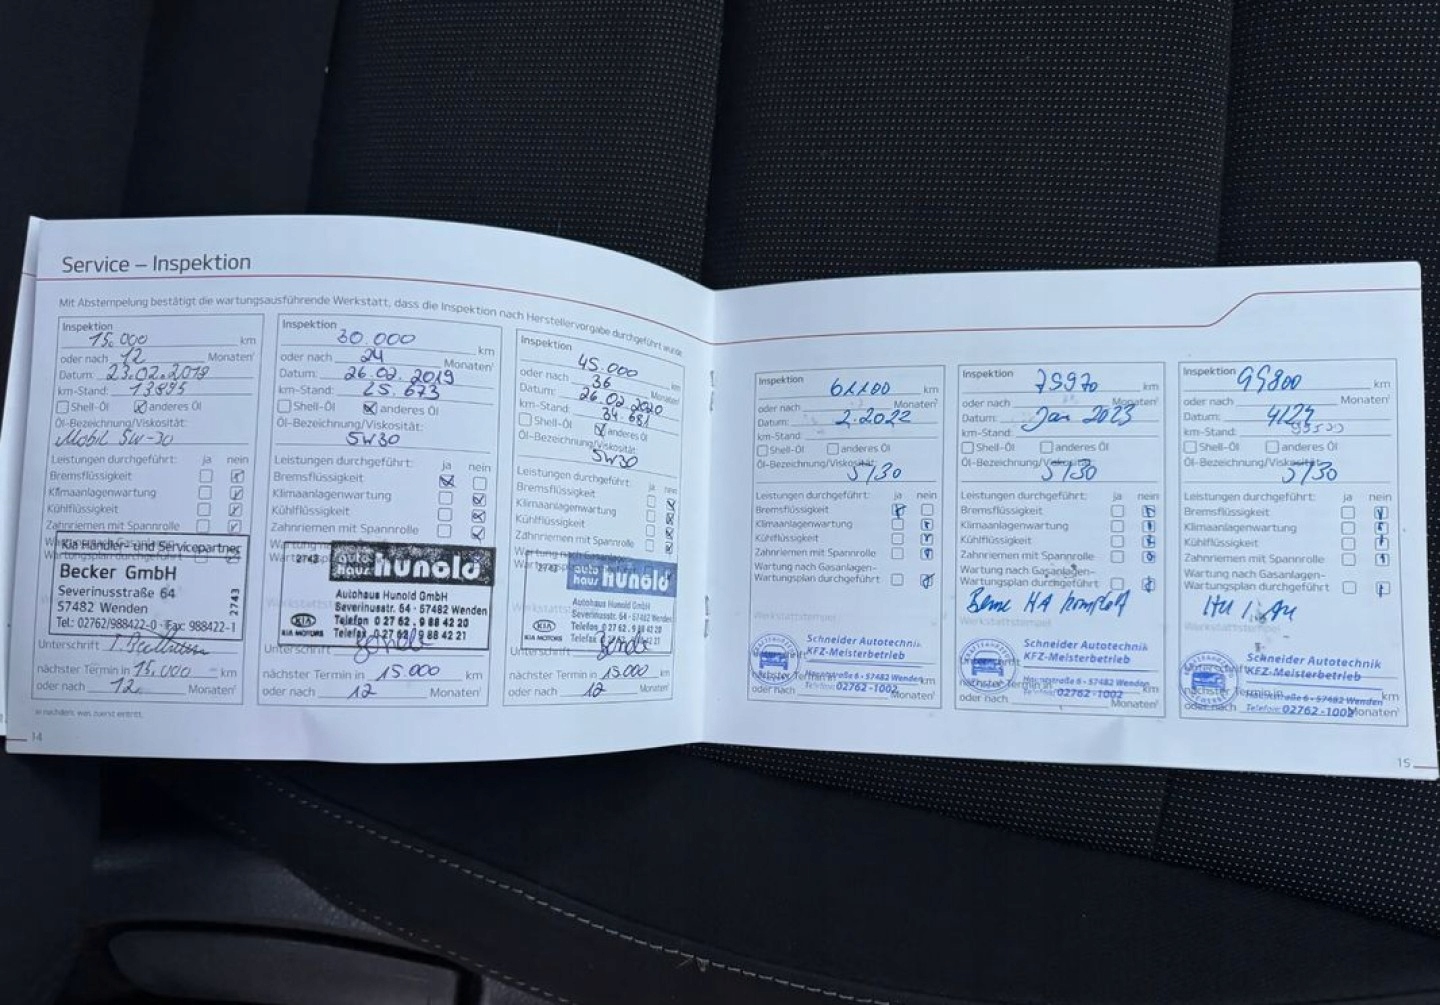 Service – Inspektion
Mit Abstempelung bestätigt die wartungsausführende Werkstatt, dass die Inspektion nach Herstellervorgabe durchgeführt wurde.
Inspektion
15.000 km
oder nach 12 Monaten¹
Datum: 23.02.2019
km-Stand: 13895
Shell-Öl anderes Öl
Öl-Bezeichnung/Viskosität:
Mobil 5W-30
Leistungen durchgeführt: ja nein
Bremsflüssigkeit
Klimaanlagenwartung
Kühlflüssigkeit
Zahnriemen mit Spannrolle
Kia Händler- und Servicepartner
Becker GmbH
Severinusstraße 64
57482 Wenden
Tel.: 02762/988422-0 · Fax: 988422-1
2743
Unterschrift
nächster Termin in 15.000 km
oder nach 12 Monaten¹
14
Inspektion
30.000 km
oder nach 24 Monaten¹
Datum: 26.02.2019
km-Stand: 25.673
Shell-Öl anderes Öl
Öl-Bezeichnung/Viskosität:
5W30
Leistungen durchgeführt: ja nein
Bremsflüssigkeit
Klimaanlagenwartung
Kühlflüssigkeit
Zahnriemen mit Spannrolle
2743 auto haus hunold
Autohaus Hunold GmbH
Severinusstr. 64 · 57482 Wenden
Telefon 0 27 62 . 9 88 42 20
Telefax 0 27 62 . 9 88 42 21
KIA MOTORS
Unterschrift
nächster Termin in 15.000 km
oder nach 12 Monaten¹
Inspektion
45.000 km
oder nach 36 Monaten¹
Datum: 26.02.2020
km-Stand: 34.681
Shell-Öl anderes Öl
Öl-Bezeichnung/Viskosität:
5W30
Leistungen durchgeführt: ja nein
Bremsflüssigkeit
Klimaanlagenwartung
Kühlflüssigkeit
Zahnriemen mit Spannrolle
2743 auto haus hunold
Autohaus Hunold GmbH
Severinusstr. 64 · 57482 Wenden
Telefon 0 27 62 . 9 88 42 20
Telefax 0 27 62 . 9 88 42 21
KIA MOTORS
Unterschrift
nächster Termin in 15.000 km
oder nach 12 Monaten¹
Inspektion
61100 km
oder nach Monaten¹
Datum: 2.2022
km-Stand:
Shell-Öl anderes Öl
Öl-Bezeichnung/Viskosität:
5/30
Leistungen durchgeführt: ja nein
Bremsflüssigkeit
Klimaanlagenwartung
Kühlflüssigkeit
Zahnriemen mit Spannrolle
Wartung nach Gasanlagen-
Wartungsplan durchgeführt
Werkstattstempel
Schneider Autotechnik
KFZ-Meisterbetrieb
Hauptstraße 6 - 57482 Wenden
Telefon: 02762-1002
nächster Termin in km
oder nach Monaten¹
Inspektion
75970 km
oder nach Monaten¹
Datum: Jan 2023
km-Stand:
Shell-Öl anderes Öl
Öl-Bezeichnung/Viskosität:
5/30
Leistungen durchgeführt: ja nein
Bremsflüssigkeit
Klimaanlagenwartung
Kühlflüssigkeit
Zahnriemen mit Spannrolle
Wartung nach Gasanlagen-
Wartungsplan durchgeführt
HA komplett
Werkstattstempel
Schneider Autotechnik
KFZ-Meisterbetrieb
Hauptstraße 6 - 57482 Wenden
02762-1002
nächster Termin in km
oder nach Monaten¹
Inspektion
99800 km
oder nach Monaten¹
Datum: 4/24
km-Stand:
Shell-Öl anderes Öl
Öl-Bezeichnung/Viskosität:
5/30
Leistungen durchgeführt: ja nein
Bremsflüssigkeit
Klimaanlagenwartung
Kühlflüssigkeit
Zahnriemen mit Spannrolle
Wartung nach Gasanlagen-
Wartungsplan durchgeführt
Werkstattstempel
Schneider Autotechnik
KFZ-Meisterbetrieb
Hauptstraße 6 - 57482 Wenden
Telefon: 02762-1002
nächster Termin in km
oder nach Monaten¹
15